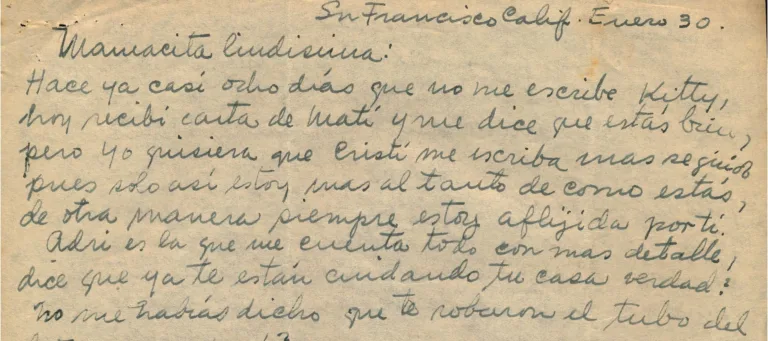 Sn Francisco Calif. Enero 30.
Mamacita lindisima:
Hace ya casi ocho días que no me escribe Kitty,
hoy recibí carta de Matí y me dice que estás bien,
pero yo quisiera que Cristí me escriba mas seguido
pues solo así estoy mas al tanto de como estás,
de otra manera siempre estoy aflijida por tí.
Adri es la que me cuenta todo con mas detalle,
dice que ya te están cuidando tu casa verdad?
no me habías dicho que te robaron el tubo del